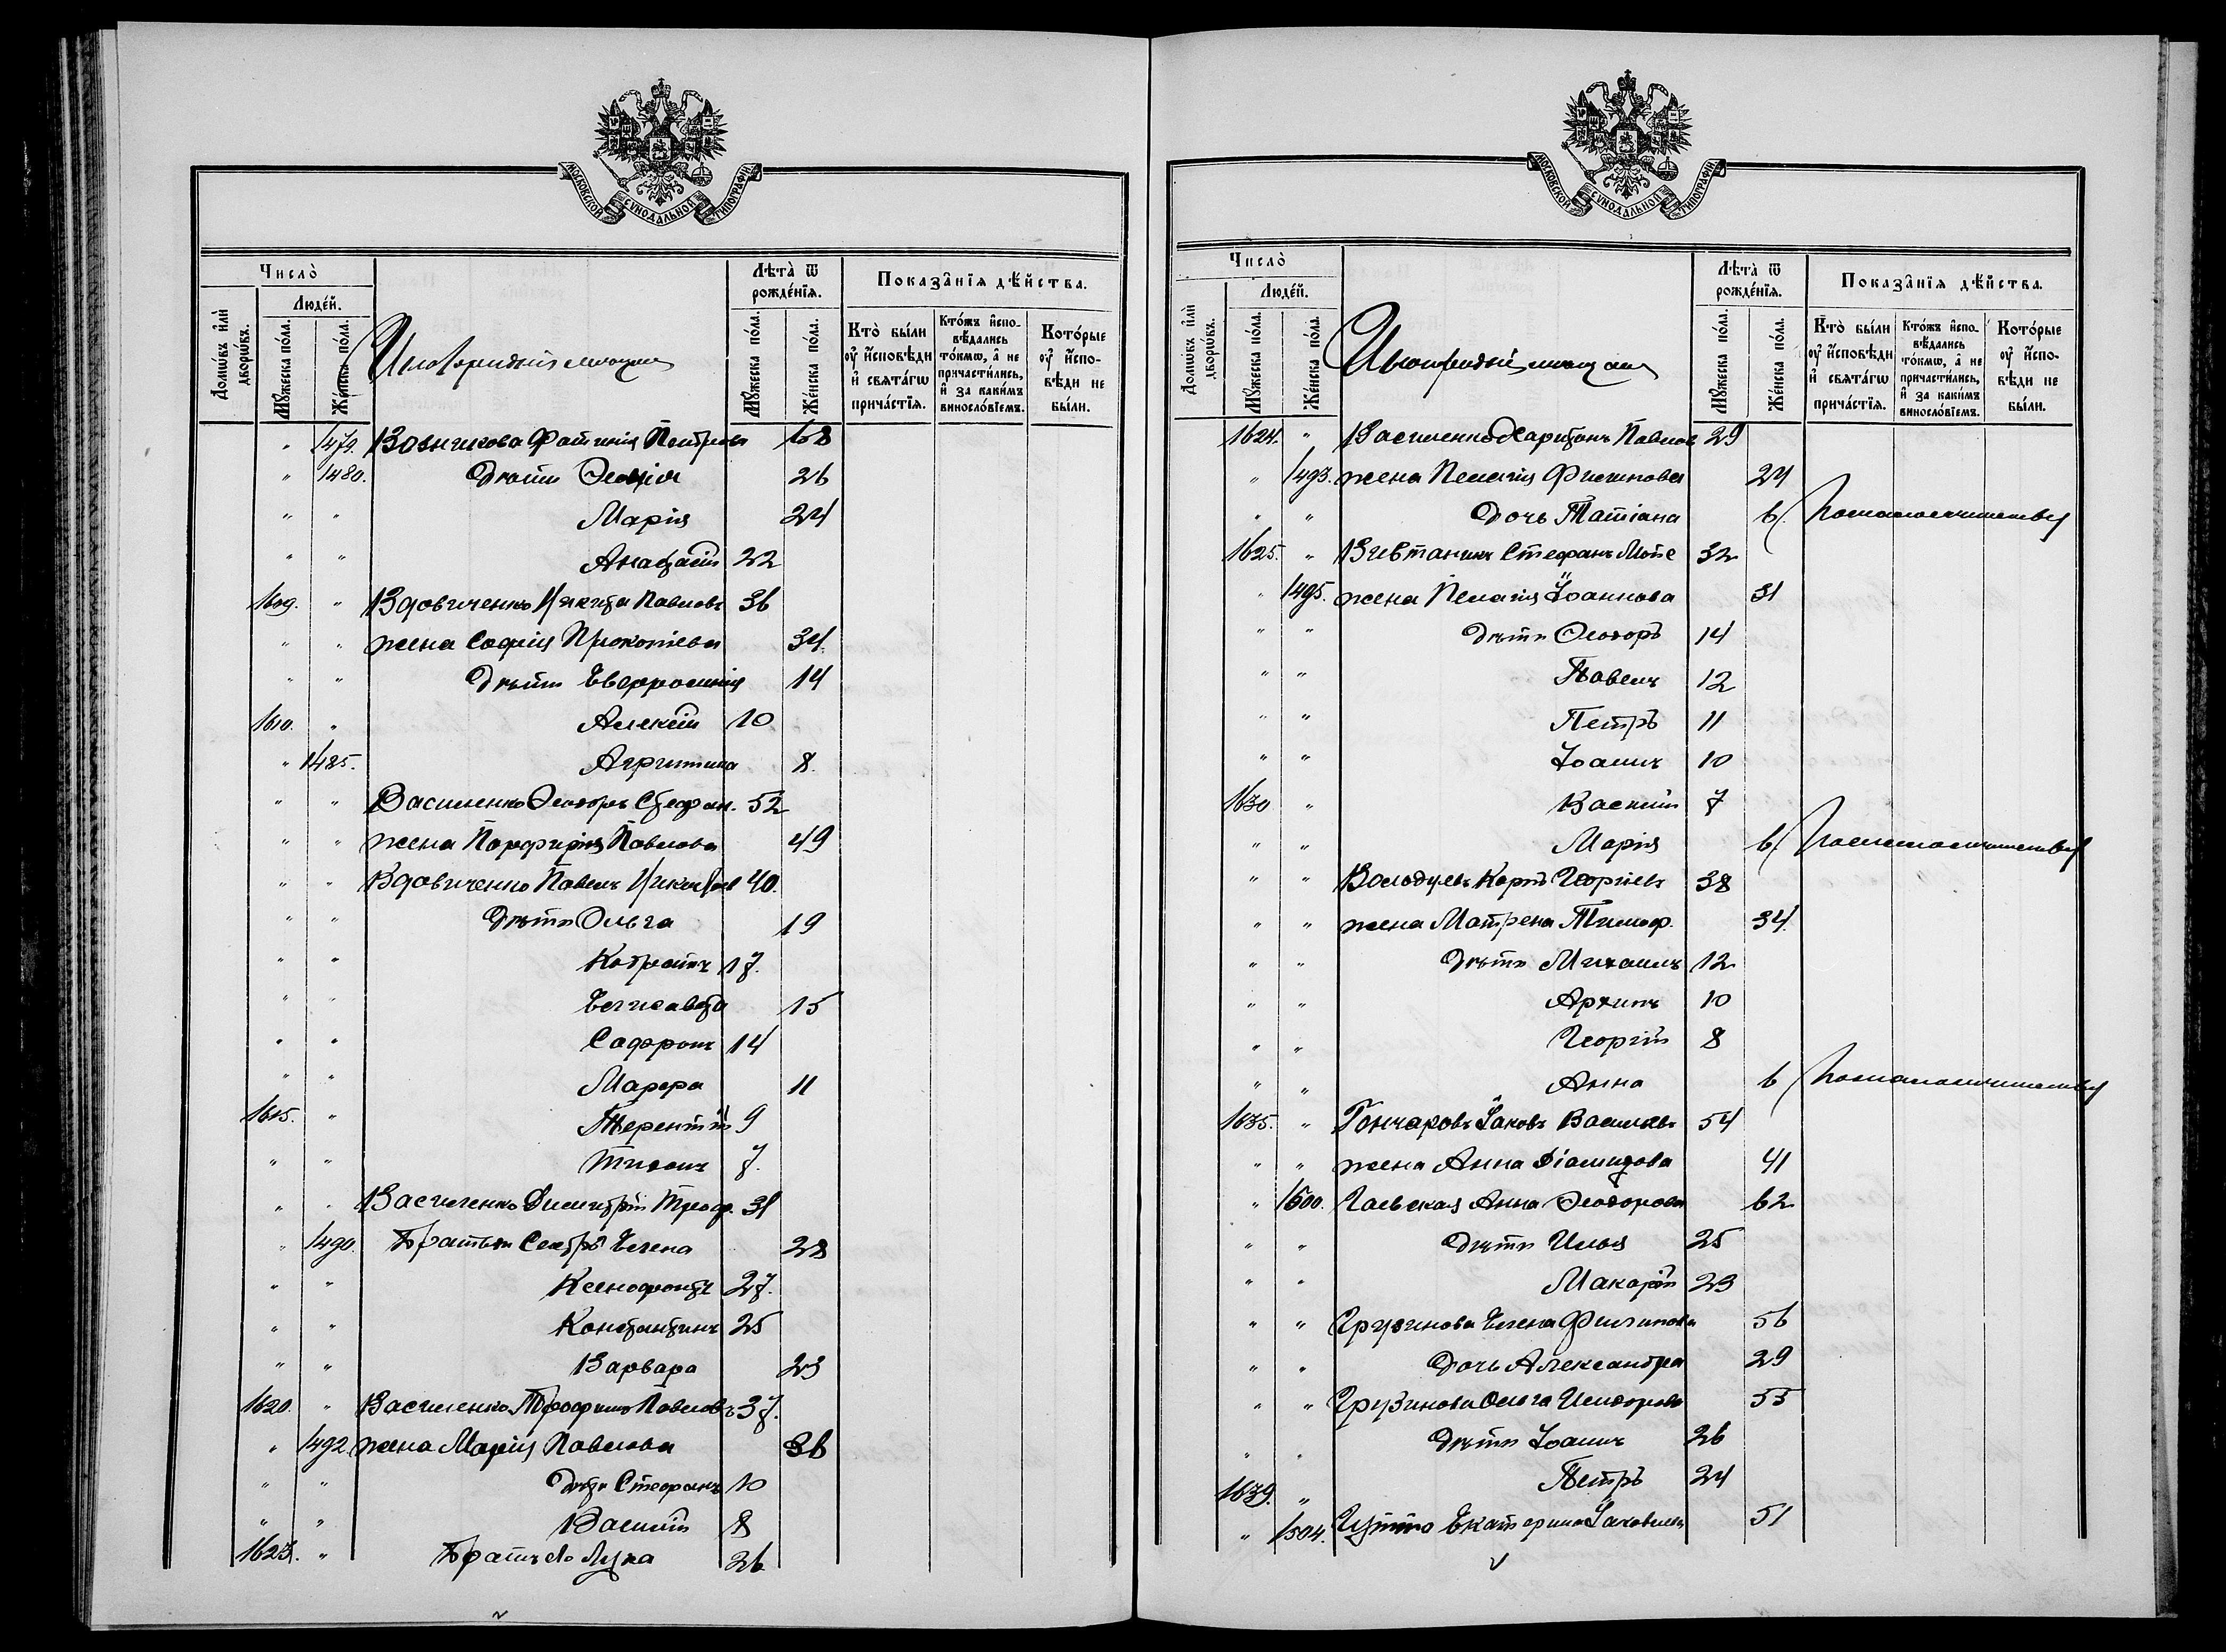 МОСКОВСКОЙ СѴНОДАЛЬНОЙ ТИПОГРАФІИ
Число̀
Домѡвъ и҆лѝ дворѡ́въ.
Люде́й.
Мꙋ́жеска по́ла.
Же́нска по́ла.
Лѣта̀ ѿ рожде́нїѧ.
Мꙋ́жеска по́ла.
Же́нска по́ла.
Показа̑нїѧ дѣ́йства.
Кто̀ бы́ли ᲂу҆ и҆сповѣ́ди и҆ свѧта́гѡ прича́стїѧ.
Кто́жъ и҆спо-вѣ́дались то́кмѡ, а҆ не причасти́лись, и҆ за каки́мъ винослѡ́вїемъ.
Кото́рые ᲂу҆ и҆спо-вѣ́ди не бы́ли.
" 1479. Фотинія Петрова 68
" 1480. Дѣти 26
" " Марія 24
" " 22
1609. " Вдовиченко Никита Павловъ 36
" " жена Софія Прокопіева 34.
" " Дѣти Евфросинія 14
1610. " Алексій 10
" 1485. Агрипина 8.
" " Василенко Ѳеодоръ Стефан. 52
" " жена Порфирія Павлова 49
" " Вдовиченко Павелъ 40.
" " Дѣти Ольга 19
" " Кодратъ 17.
" " Елисавета 15
" " Софронъ 14
" " Марфа 11
1615. " Терентій 9
" " Тихонъ 7.
" " Василенко Димитрій Троф. 31
" 1490. Братья Сестры Елена 28
" " Ксенофонтъ 27.
" " Константинъ 25
" " Варвара 23
1620. " Василенко Трофимъ Павловъ 37.
" 1492. жена Марія Павлова 36
" " Дѣти Стефанъ 10
" " Василій 8
1623. " Братъ его Лука 26
МОСКОВСКОЙ СѴНОДАЛЬНОЙ ТИПОГРАФІИ
Число̀
Домѡвъ и҆лѝ дворѡ́въ.
Люде́й.
Мꙋ́жеска по́ла.
Же́нска по́ла.
Лѣта̀ ѿ рожде́нїѧ.
Мꙋ́жеска по́ла.
Же́нска по́ла.
Показа̑нїѧ дѣ́йства.
Кто̀ бы́ли ᲂу҆ и҆сповѣ́ди и҆ свѧта́гѡ прича́стїѧ.
Кто́жъ и҆спо-вѣ́дались то́кмѡ, а҆ не причасти́лись, и҆ за каки́мъ винослѡ́вїемъ.
Кото́рые ᲂу҆ и҆спо-вѣ́ди не бы́ли.
1624. " Василенко Харитонъ Павлов 29
" 1493. жена Пелагія Филипова 24
" " Дочь Татіана 6. По малолѣтству
1625. " Стефанъ Моѵс 32
" 1495. жена Пелагія Іоаннова 31
" " Дѣти Ѳеодоръ 14
" " Павелъ 12
" " Петръ 11
" " Іоаннъ 10
1630 " Василій 7
" " Марія 6. По малолѣтству
" " Карпъ Георгіевъ 38
" " жена Матрена Тимоф. 34.
" " Дѣти Михаилъ 12
" " Архипъ 10
" " Георгій 8
" " Анна 6 По малолѣтству
1635. " Гончаровъ Іаковъ Васильев 54
" " жена Анна Діомидова 41
" 1500. Гаевская Анна Ѳеодорова 62
" " Дѣти Илья 25
" " Макарій 23
" " Грузинова Елена Филипова 56
" " Дочь Александра 29
" " Грузинова Ольга Исидорова 55
" " Дѣти Іоаннъ 26
1639. " Петръ 24
" 1504. Екатерина Іаковлева 51